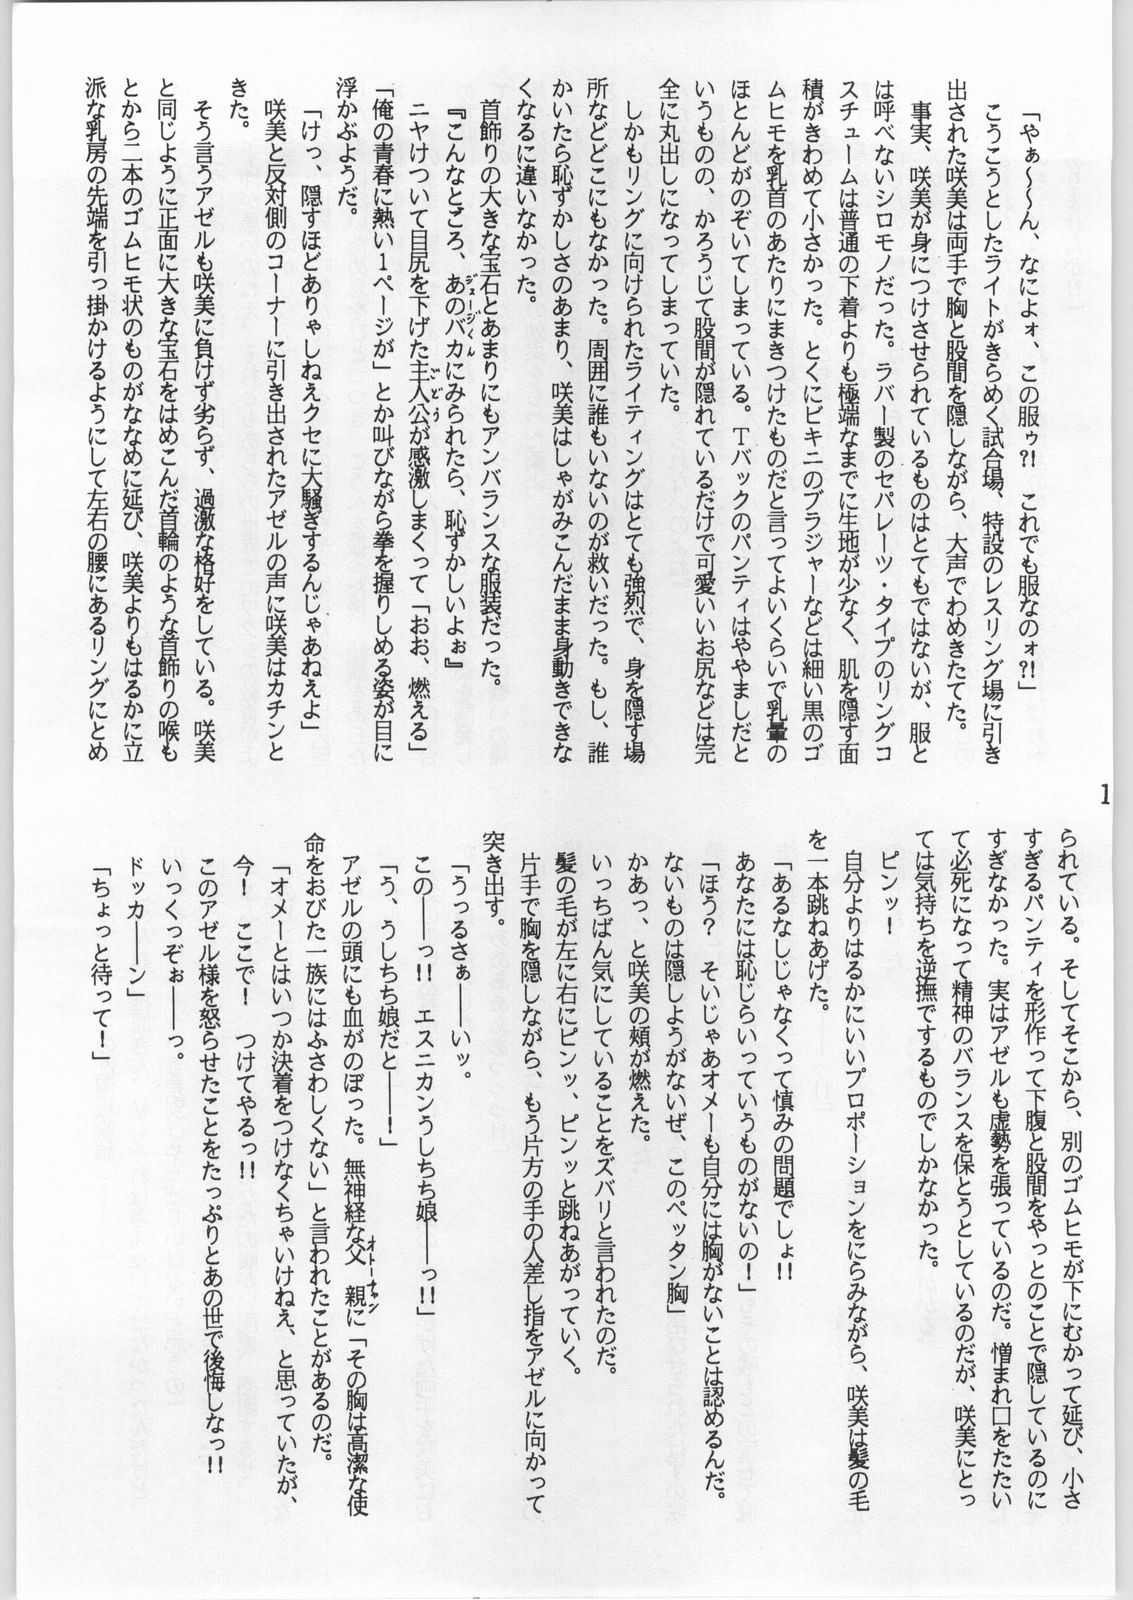 「やぁ～～～ん、なによォ、この服ゥ?!　これでも服なのォ?!」
こうこうとしたライトがきらめく試合場、特設のレスリング場に引き
出された咲美は両手で胸と股間を隠しながら、大声でわめきたてた。
事実、咲美が身につけさせられているものはとてもではないが、服と
は呼べないシロモノだった。ラバー製のセパレーツ・タイプのリングコ
スチュームは普通の下着よりも極端なまでに生地が少なく、肌を隠す面
積がきわめて小さかった。とくにビキニのブラジャーなどは細い黒のゴ
ムヒモを乳首のあたりにまきつけたものだと言ってよいくらいで乳暈の
ほとんどがのぞいてしまっている。Ｔバックのパンティはややましだと
いうものの、かろうじて股間が隠れているだけで可愛いいお尻などは完
全に丸出しになってしまっていた。
しかもリングに向けられたライティングはとても強烈で、身を隠す場
所などどこにもなかった。周囲に誰もいないのが救いだった。もし、誰
かいたら恥ずかしさのあまり、咲美はしゃがみこんだまま身動きできな
くなるに違いなかった。
首飾りの大きな宝石とあまりにもアンバランスな服装だった。
『こんなところ、あのバカにみられたら、恥ずかしいよぉ』
ジュージくん
ニヤけついて目尻を下げた主人公が感激しまくって「おお、燃える」
ごどう
「俺の青春に熱い１ページが」とか叫びながら拳を握りしめる姿が目に
浮かぶようだ。
「けっ、隠すほどありゃしねえクセに大騒ぎするんじゃあねえよ」
咲美と反対側のコーナーに引き出されたアゼルの声に咲美はカチンと
きた。
そう言うアゼルも咲美に負けず劣らず、過激な格好をしている。咲美
と同じように正面に大きな宝石をはめこんだ首輪のような首飾りの喉も
とから二本のゴムヒモ状のものがななめに延び、咲美よりもはるかに立
派な乳房の先端を引っ掛かけるようにして左右の腰にあるリングにとめ
1
られている。そしてそこから、別のゴムヒモが下にむかって延び、小さ
すぎるパンティを形作って下腹と股間をやっとのことで隠しているのに
すぎなかった。実はアゼルも虚勢を張っているのだ。憎まれ口をたたい
て必死になって精神のバランスを保とうとしているのだが、咲美にとっ
ては気持ちを逆撫でするものでしかなかった。
ピンッ！
自分よりはるかにいいプロポーションをにらみながら、咲美は髪の毛
を一本跳ねあげた。
「あるなしじゃなくって慎みの問題でしょ!!
あなたには恥じらいっていうものがないの！」
「ほう？　そいじゃあオメーも自分には胸がないことは認めるんだ。
ないものは隠しようがないぜ、このペッタン胸」
かあっ、と咲美の頬が燃えた。
いっちばん気にしていることをズバリと言われたのだ。
髪の毛が左に右にピンッ、ピンッと跳ねあがっていく。
片手で胸を隠しながら、もう片方の手の人差し指をアゼルに向かって
突き出す。
「うっるさぁ――いッ。
この――っ!!　エスニカンうしちち娘――っ!!」
「う、うしちち娘だと――！」
アゼルの頭にも血がのぼった。無神経な父　親に「その胸は高潔な使
オトーチャン
命をおびた一族にはふさわしくない」と言われたことがあるのだ。
「オメーとはいつか決着をつけなくちゃいけねえ、と思っていたが、
今！　ここで！　つけてやるっ!!
このアゼル様を怒らせたことをたっぷりとあの世で後悔しなっ!!
いっくっぞぉ――っ。
ドッカ――ン」
「ちょっと待って！」